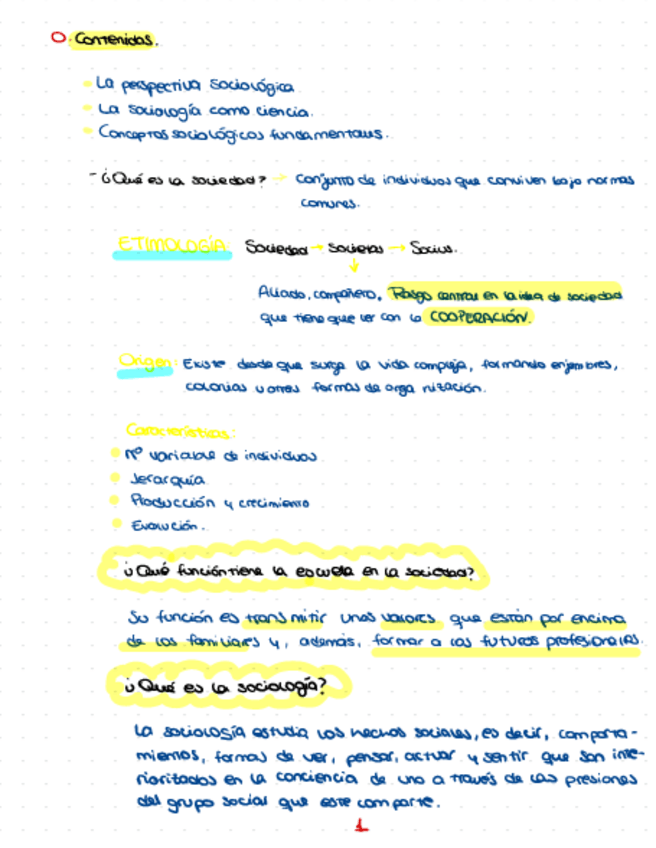 O. Contenidos.
- La perspectiva sociológica
- La sociología como ciencia.
- Conceptos sociológicos fundamentales.
- ¿Qué es la sociedad? → Conjunto de individuos que conviven bajo normas
comunes.
ETIMOLOGÍA: Sociedad → Societas → Socius.
↓
Aliado, compañero, Rasgo central en la idea de sociedad
que tiene que ver con la COOPERACIÓN.
Origen: Existe desde que surge la vida compleja, formando enjambres,
colonias u otras formas de organización.
Características:
Nº variable de individuos
Jerarquía
Producción y crecimiento
Evolución.
¿Qué función tiene la escuela en la sociedad?
Su función es transmitir unos valores que están por encima
de los familiares y, además, formar a los futuros profesionales.
¿Qué es la sociología?
La sociología estudia los hechos sociales, es decir, comporta-
mientos, formas de ver, pensar, actuar y sentir que son inte-
riorizados en la conciencia de uno a través de las presiones
del grupo social que este comparte.
1